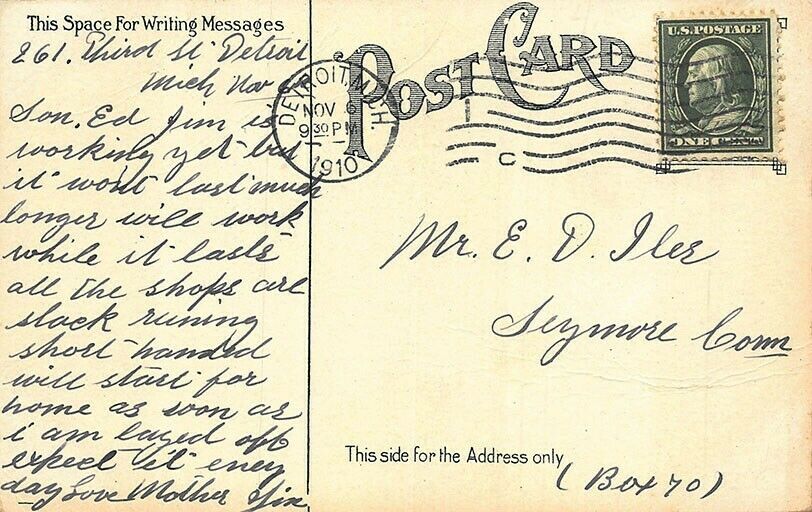 This Space For Writing Messages
261. Third St Detroit
Mich Nov
Son. Ed Jim is
working yet but
it wont last much
longer will work
while it lasts
all the shops are
slack runing
short handed
will start for
home as soon as
i am layed off
expect it eney
day Love Mother Jim
POST CARD
DETROIT, MICH.
NOV 6
9 30 PM
1910
C
U.S. POSTAGE
ONE CENT
Mr. E. D. Iler
Seymore Conn
This side for the Address only
(Box 70)